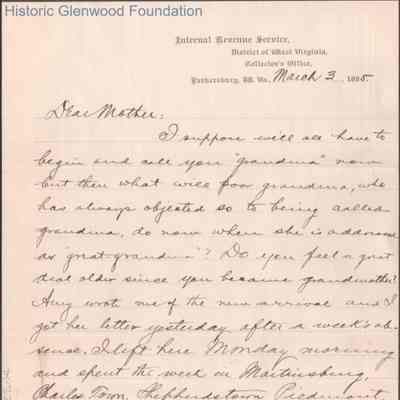 Historic Glenwood Foundation
Internal Revenue Service,
District of West Virginia,
Collector's Office,
Parkersburg, W. Va., March 3, 1885.
Dear Mother:
I suppose we'll all have to
begin and call you "grandma" now
but then what will poor grandma, who
has always objected so to being called
grandma, do now when she is addressed
as "great-grandma"? Do you feel a great
deal older since you became grandmother?
Amy wrote me of the new arrival and I
got her letter yesterday after a week's ab-
sense. I left here Monday morning
and spent the week in Martinsburg,
Charles Town, Shepherdstown, Piedmont,